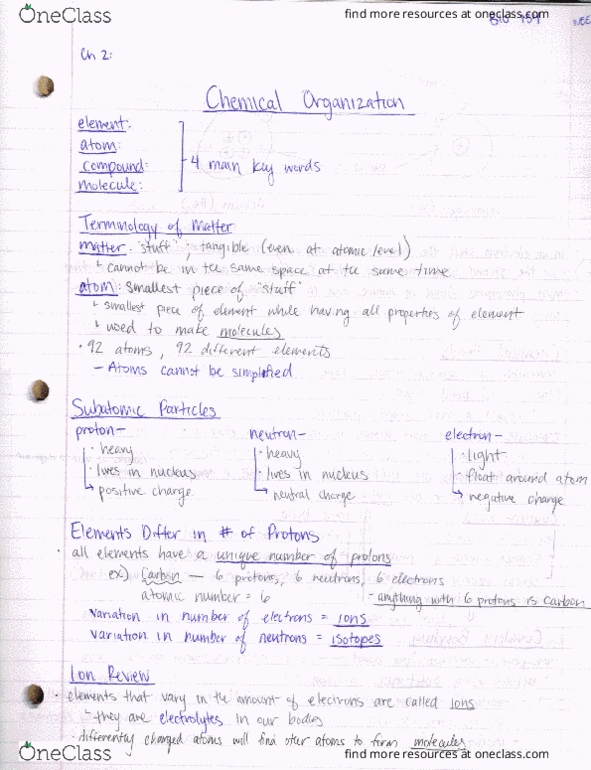 OneClass
find more resources at oneclass.com
Ch 2:
Chemical Organization
element:
atom:
compound:
molecule:
4 main key words
Terminology of Matter
matter: "stuff", tangible (even at atomic level)
cannot be in the same space at the same time
atom: smallest piece of "stuff"
smallest piece of element while having all properties of element
used to make molecules
• 92 atoms, 92 different elements
- Atoms cannot be simplified
Subatomic Particles
proton- neutron- electron-
• heavy • heavy • light
• lives in nucleus • lives in nucleus • float around atom
positive charge neutral charge negative charge
Elements Differ in # of Protons
• all elements have a unique number of protons
ex) Carbon — 6 protons, 6 neutrons, 6 electrons
atomic number = 6 - anything with 6 protons is carbon
Variation in number of electrons = ions
Variation in number of neutrons = isotopes
Ion Review
• elements that vary in the amount of electrons are called ions
- they are electrolytes in our bodies
• differently charged atoms will find other atoms to form molecules
OneClass
find more resources at oneclass.com